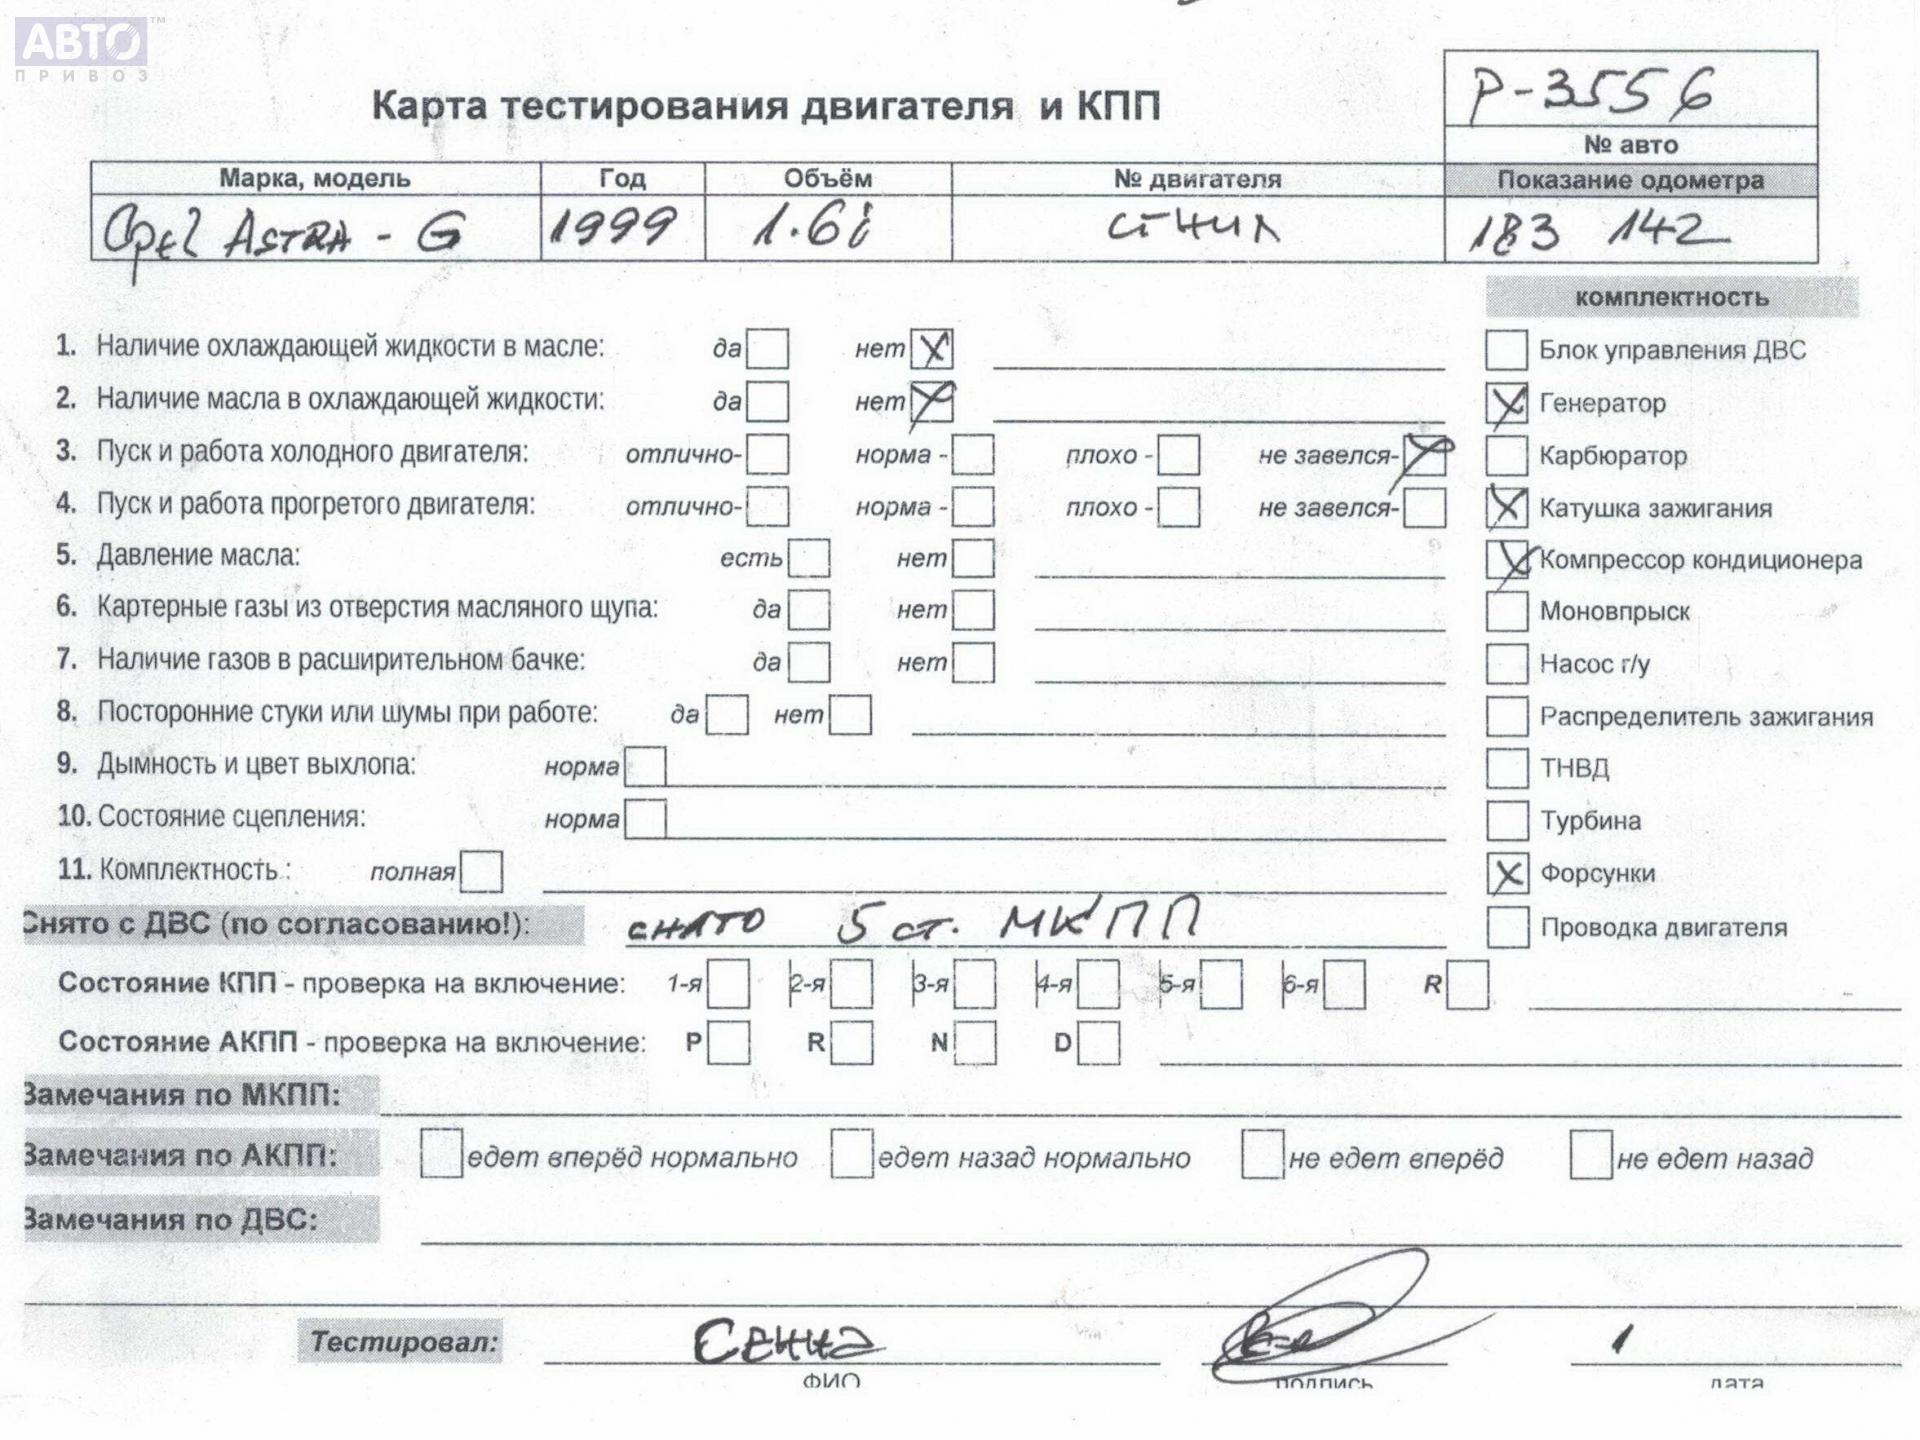 АВТО™
ПРИВОЗ
P-3556
Карта тестирования двигателя и КПП
№ авто
Марка, модель Год Объём № двигателя Показание одометра
Opel ASTRA - G 1999 1.6i сгнил 183 142
комплектность
1. Наличие охлаждающей жидкости в масле: да нет X Блок управления ДВС
2. Наличие масла в охлаждающей жидкости: да нет X X Генератор
3. Пуск и работа холодного двигателя: отлично- норма - плохо - не завелся- X Карбюратор
4. Пуск и работа прогретого двигателя: отлично- норма - плохо - не завелся- X Катушка зажигания
5. Давление масла: есть нет X Компрессор кондиционера
6. Картерные газы из отверстия масляного щупа: да нет Моновпрыск
7. Наличие газов в расширительном бачке: да нет Насос г/у
8. Посторонние стуки или шумы при работе: да нет Распределитель зажигания
9. Дымность и цвет выхлопа: норма ТНВД
10. Состояние сцепления: норма Турбина
11. Комплектность : полная X Форсунки
Снято с ДВС (по согласованию!): снято 5 ст. МКПП Проводка двигателя
Состояние КПП - проверка на включение: 1-я 2-я 3-я 4-я 5-я 6-я R
Состояние АКПП - проверка на включение: P R N D
Замечания по МКПП:
Замечания по АКПП: едет вперёд нормально едет назад нормально не едет вперёд не едет назад
Замечания по ДВС:
Тестировал:
ФИО подпись дата